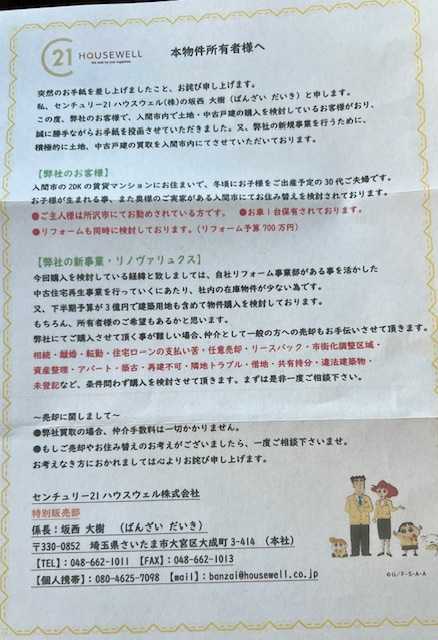 C21 HOUSEWELL
本物件所有者様へ
突然のお手紙を差し上げましたこと、お詫び申し上げます。
私、センチュリー21ハウスウェル(株)の坂西 大樹（ばんざい だいき）と申します。
この度、弊社のお客様で、入間市内で土地・中古戸建の購入を検討しているお客様がおり、
誠に勝手ながらお手紙を投函させていただきました。又、弊社の新規事業を行うために、
積極的に土地、中古戸建の買取を入間市内にてさせていただいております。
【弊社のお客様】
入間市の2DKの賃貸マンションにお住まいで、冬頃にお子様をご出産予定の30代ご夫婦です。
お子様が生まれる事、また奥様のご実家がある入間市にてお住み替えを検討されております。
●ご主人様は所沢市にてお勤めされている方です。 ●お車1台保有されております。
●リフォームも同時に検討しております。（リフォーム予算700万円）
【弊社の新事業・リノヴァリュクス】
今回購入を検討している経緯と致しましては、自社リフォーム事業部がある事を活かした
中古住宅再生事業を行っていくにあたり、社内の在庫物件が少ない為です。
又、下半期予算が3億円で建築用地も含めて物件購入を検討しております。
もちろん、所有者様のご希望もあるかと思います。
弊社にてご購入させて頂く事が難しい場合、仲介として一般の方への売却もお手伝いさせて頂きます。
相続・離婚・転勤・住宅ローンの支払い苦・任意売却・リースバック・市街化調整区域・
資産整理・アパート・築古・再建不可・隣地トラブル・借地・共有持分・違法建築物・
未登記など、条件問わず購入を検討させて頂きます。まずは是非一度ご相談下さい。
～売却に関しまして～
●弊社買取の場合、仲介手数料は一切かかりません。
●もしご売却やお住み替えのお考えがございましたら、一度ご相談下さいませ。
お考えなき方におかれましては心よりお詫び申し上げます。
センチュリー21ハウスウェル株式会社
特別販売部
係長：坂西 大樹 （ばんざい だいき）
〒330-0852 埼玉県さいたま市大宮区大成町3-414 （本社）
【TEL】：048-662-1011 【FAX】：048-662-1013
【個人携帯】：080-4625-7098 【mail】：banzai@housewell.co.jp
©U/F・S・A・A